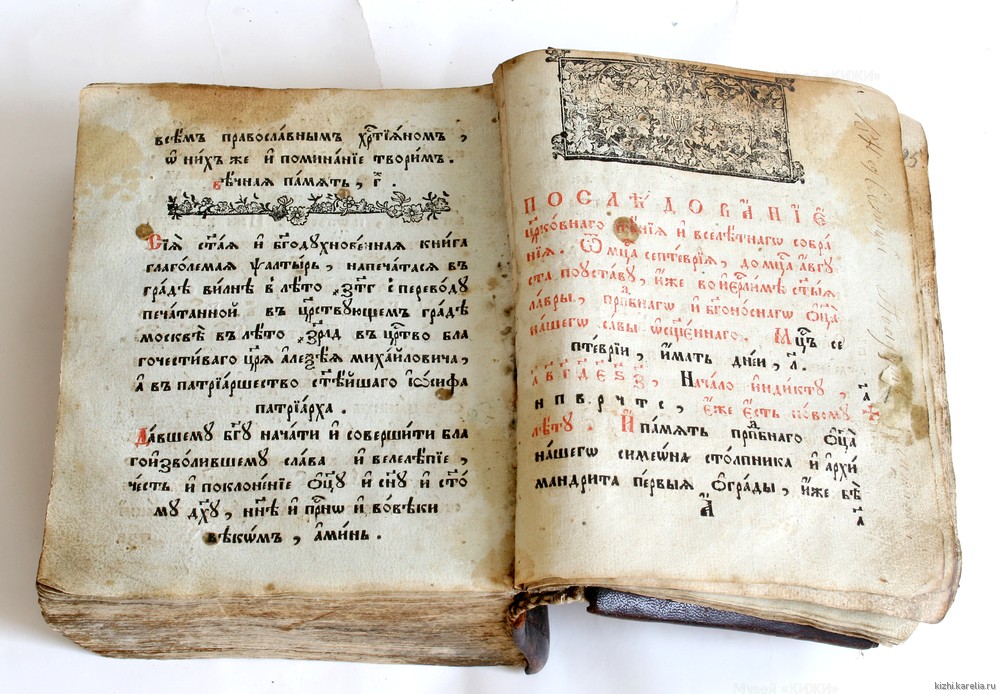 всѣ́мъ правосла́внымъ хр҇тїѧ́номъ ,
ѡ҆ ни́хъ же и҆ поминанїе твори́мъ .
вѣ́чная па́мять , г҃ .
Сїѧ̀ ст҃а́ѧ и҆ бг҃одухнове́нная кни́га
глаго́лемая ѱалты́рь , напеча́таса въ
гра́дѣ ви́лнѣ в лѣ́то с перево́ду
печа́танной въ ца́рствующемъ гра́дѣ
москвѣ̀ въ лѣ́то въ ца́рство бла
гочести́ваго цр҃ѧ̀ алеѯѣ́а миха́йловича ,
а҆ въ патрїа́ршество ст҃ѣ́йшаго і҆ѡ́сифа
патрїа́рха .
Да́вшему бг҃у нача́ти и҆ соверши́ти бла
гои҆зво́лившему сла́ва и҆ велелѣ́пїе ,
че́сть и҆ поклоне́нїе ѻ҆ц҃у̀ и҆ сн҃у и҆ ст҃о́
му дх҃у , нн҃ѣ и҆ пр҇нѡ и҆ во́вѣки
вѣкѡ́мъ , а҆ми́нь .
ПОСЛѢДОВАНЇЕ
цр҃ко́внаго пѣ́нїѧ и҆ вселѣ́тнагѡ собра
нїѧ . Ѿ мц҃а септе́врїа , до мц҃а а҆́вгу
ста по уста́ву , и҆́же во і҆ер҇ли́мѣ ст҃ы́ѧ
ла́вры , прпⷣбнаго и҆ бг҃оно́снагѡ ѻ҆ц҃а̀
на́шегѡ са́вы ѡ҆сщ҃е́ннаго . Мц҃ъ се
пте́врїи , и҆́мать дні́и , л҃ .
а҃ в҃ г҃ д҃ є҃ ѕ҃ з҃ , Нача́ло и҆нди́кту ,
н п в р ч т с , є҆́же є҆́сть но́вому
лѣ́ту . И҆ па́мять прпⷣбнаго ѻ҆ц҃а̀
на́шегѡ симеѡ́на сто́лпника и҆ а҆рхи
мандри́та пе́рвыѧ ѻ҆гра́ды , и҆́же бѣ̀
а҃
kizhi.karelia.ru